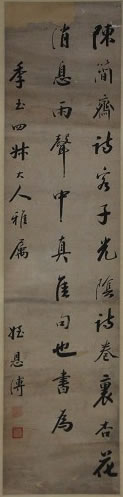 陳簡齋詩客子光陰詩卷裏杏花
消息雨聲中真佳句也書為
季玉四叔大人雅屬
姪恩溥